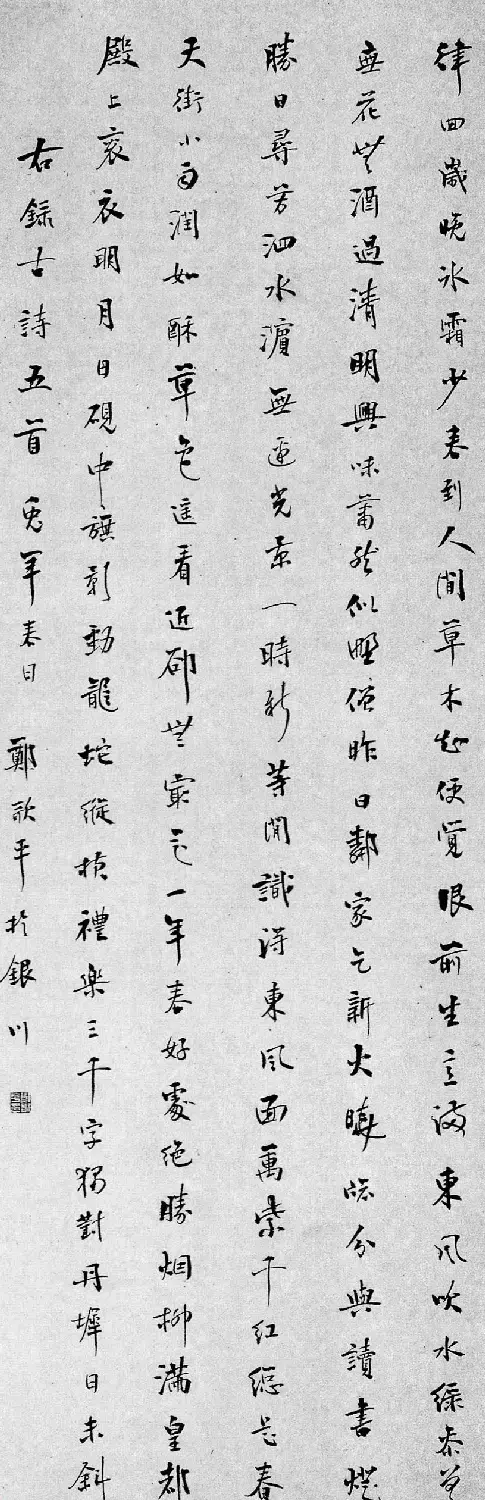 律回歲晚冰霜少春到人間草木知便覺眼前生意滿東風吹水綠參差
無花無酒過清明興味蕭然似野僧昨日鄰家乞新火曉牕分與讀書燈
勝日尋芳泗水濱無邊光景一時新等閒識得東風面萬紫千紅總是春
天街小雨潤如酥草色遙看近卻無最是一年春好處絕勝烟柳滿皇都
殿上袞衣明日月硯中旗影動龍蛇縱橫禮樂三千字獨對丹墀日未斜
右錄古詩五首兔年春日鄭歌平於銀川